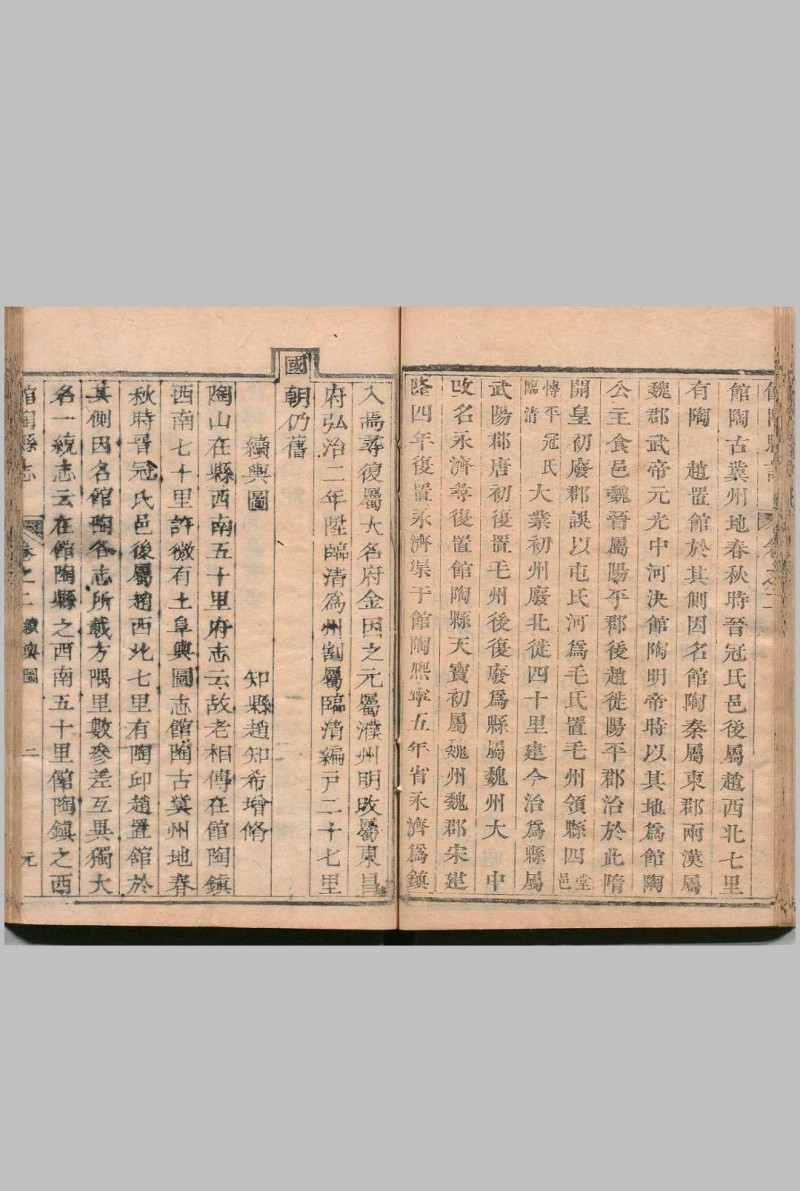 館陶縣志 圖 卷之二
館陶古冀州地春秋時晉冠氏邑後屬趙西北七里
有陶 趙置館於其側因名館陶秦屬東郡兩漢屬
魏郡武帝元光中河決館陶明帝時以其地爲館陶
公主食邑魏晉屬陽平郡後趙徙陽平郡治於此隋
開皇初廢郡誤以屯氏河爲毛氏置毛州領縣四堂邑
博平冠氏臨清大業初州廢北徙四十里建今治爲縣屬
武陽郡唐初復置毛州後復廢爲縣屬魏州大 中
改名永濟尋復置館陶縣天寶初屬魏州魏郡宋建
隆四年復置永濟渠于館陶熙寧五年省永濟爲鎮
入焉尋復屬大名府金因之元屬濮州明改屬東昌
府弘治二年陞臨清爲州割屬臨清編戶二十七里
國
朝仍舊
續輿圖
知縣趙知希增脩
陶山在縣西南五十里府志云故老相傳在館陶鎮
西南七十里許微有土阜輿圖志館陶古冀州地春
秋時晉冠氏邑後屬趙西北七里有陶邱趙置館於
其側因名館陶各志所載方隅里數參差互異獨大
名一統志云在館陶縣之西南五十里館陶鎮之西
館陶縣志 圖 卷之二 續輿圖 二 元